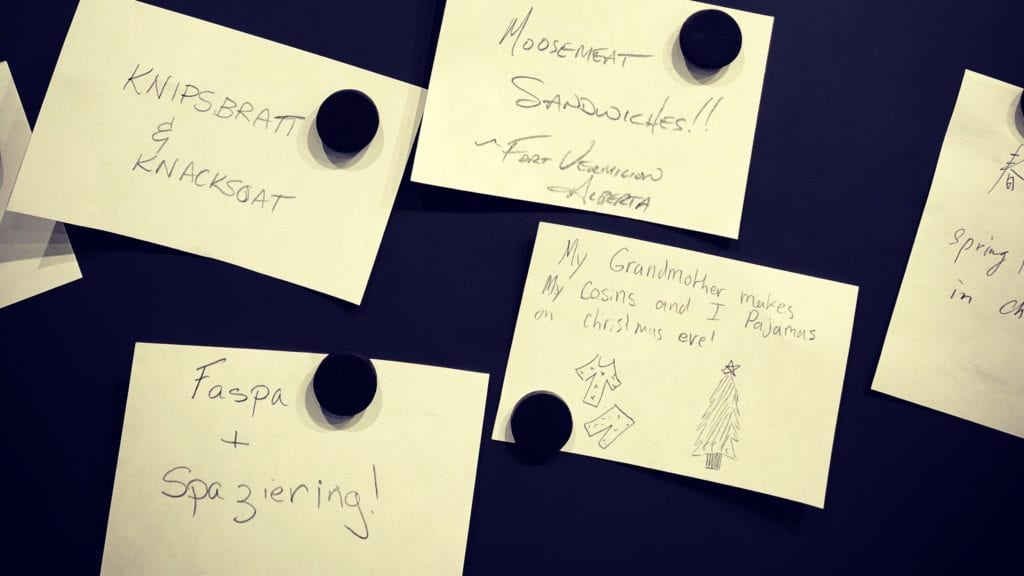 KNIPSBRATT
&
KNACKSOAT
MOOSEMEAT
SANDWICHES!!
~ FORT VERMILION
ALBERTA
My Grandmother makes
My Casins and I Pajamas
on christmas eve!
Faspa
+
Spaziering!
春
Spring
in